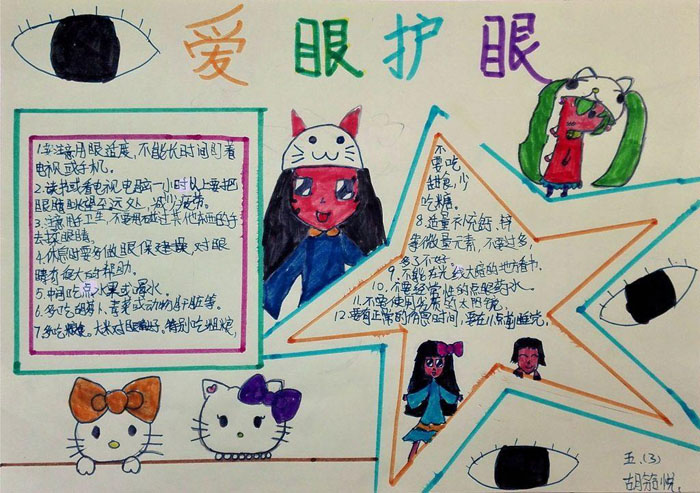 爱眼护眼
1.要注意用眼适度,不能长时间盯着
电视或手机。
2.读书或看电视电脑一小时以上要把
眼睛眺望至远处,减少疲劳。
3.注意用卫生,不要用碰过其他东西的手
去揉眼睛。
4.休息时要多做眼保健操,对眼
睛有很大的帮助。
5.中间吃点水果或喝水。
6.多吃胡萝卜、青菜或动物肝脏等。
7.多吃粗粮。大米对眼睛好,特别吃粗粮,
不
要吃
甜食,少
吃糖。
8.适量补充钙、锌
等微量元素,不要过多,
多了不好。
9.不能在光线太暗的地方看书。
10.不要经常性的点眼药水。
11.不要使用劣质的太阳镜。
12.要有正常的作息时间,要在八点前睡觉。
五.(3)
胡 悦。